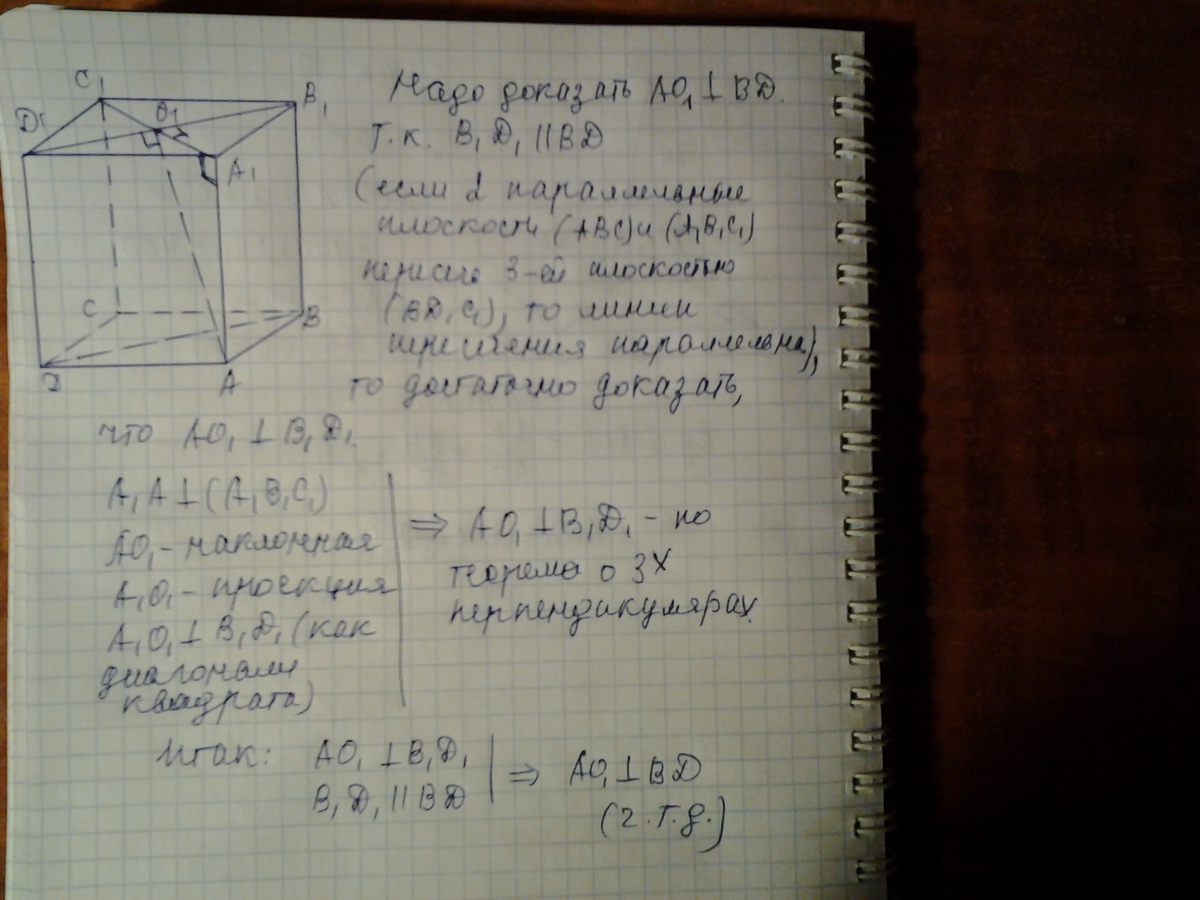 C₁
B₁
O₁
D₁
A₁
C
B
D
A
Надо доказать AO₁ ⊥ BD.
т.к. B₁D₁ || BD
(если 2 параллельные
плоскости (ABC) и (A₁B₁C₁)
пересечь 3-ей плоскостью
(BD₁C₁), то линии
пересечения параллельны),
то достаточно доказать,
что AO₁ ⊥ B₁D₁.
A₁A ⊥ (A₁B₁C₁)
AO₁ - наклонная
A₁O₁ - проекция
A₁O₁ ⊥ B₁D₁ (как
диагонали
квадрата)
⇒ AO₁ ⊥ B₁D₁ - по
теореме о 3х
перпендикулярах.
Итак: AO₁ ⊥ B₁D₁
B₁D₁ || BD
⇒ AO₁ ⊥ BD
(ч.т.д.)